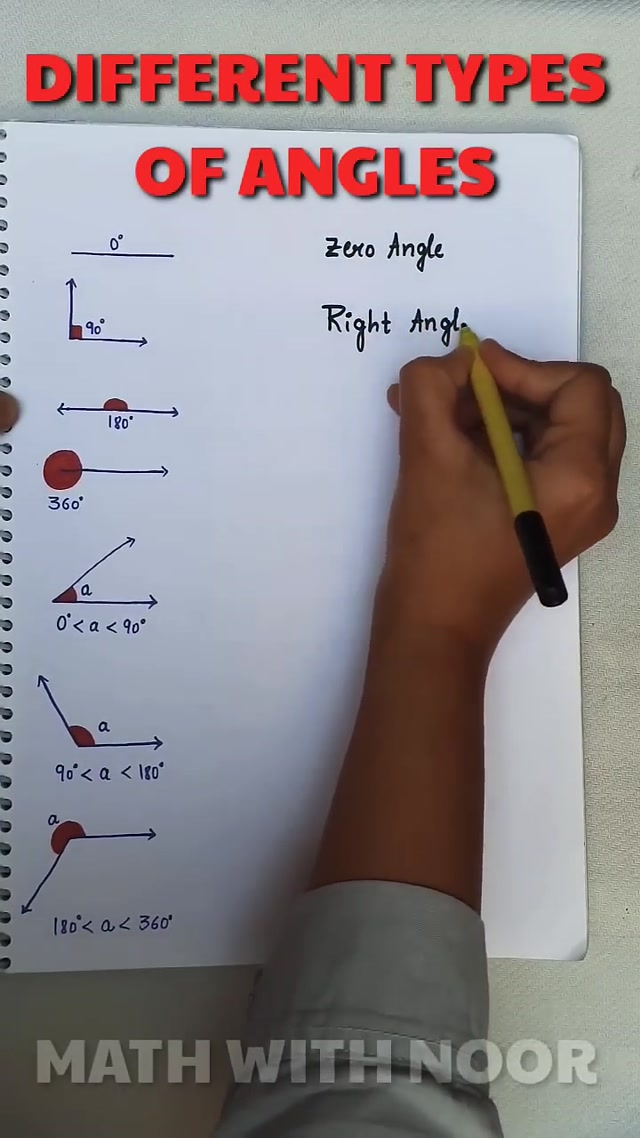 DIFFERENT TYPES
OF ANGLES
0°
Zero Angle
90°
Right Angl
180°
360°
a
0° < a < 90°
a
90° < a < 180°
a
180° < a < 360°
MATH WITH NOOR